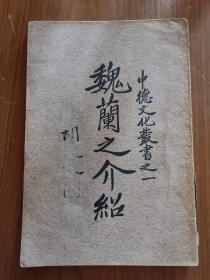 中德文化叢書之一
魏蘭之介紹
胡